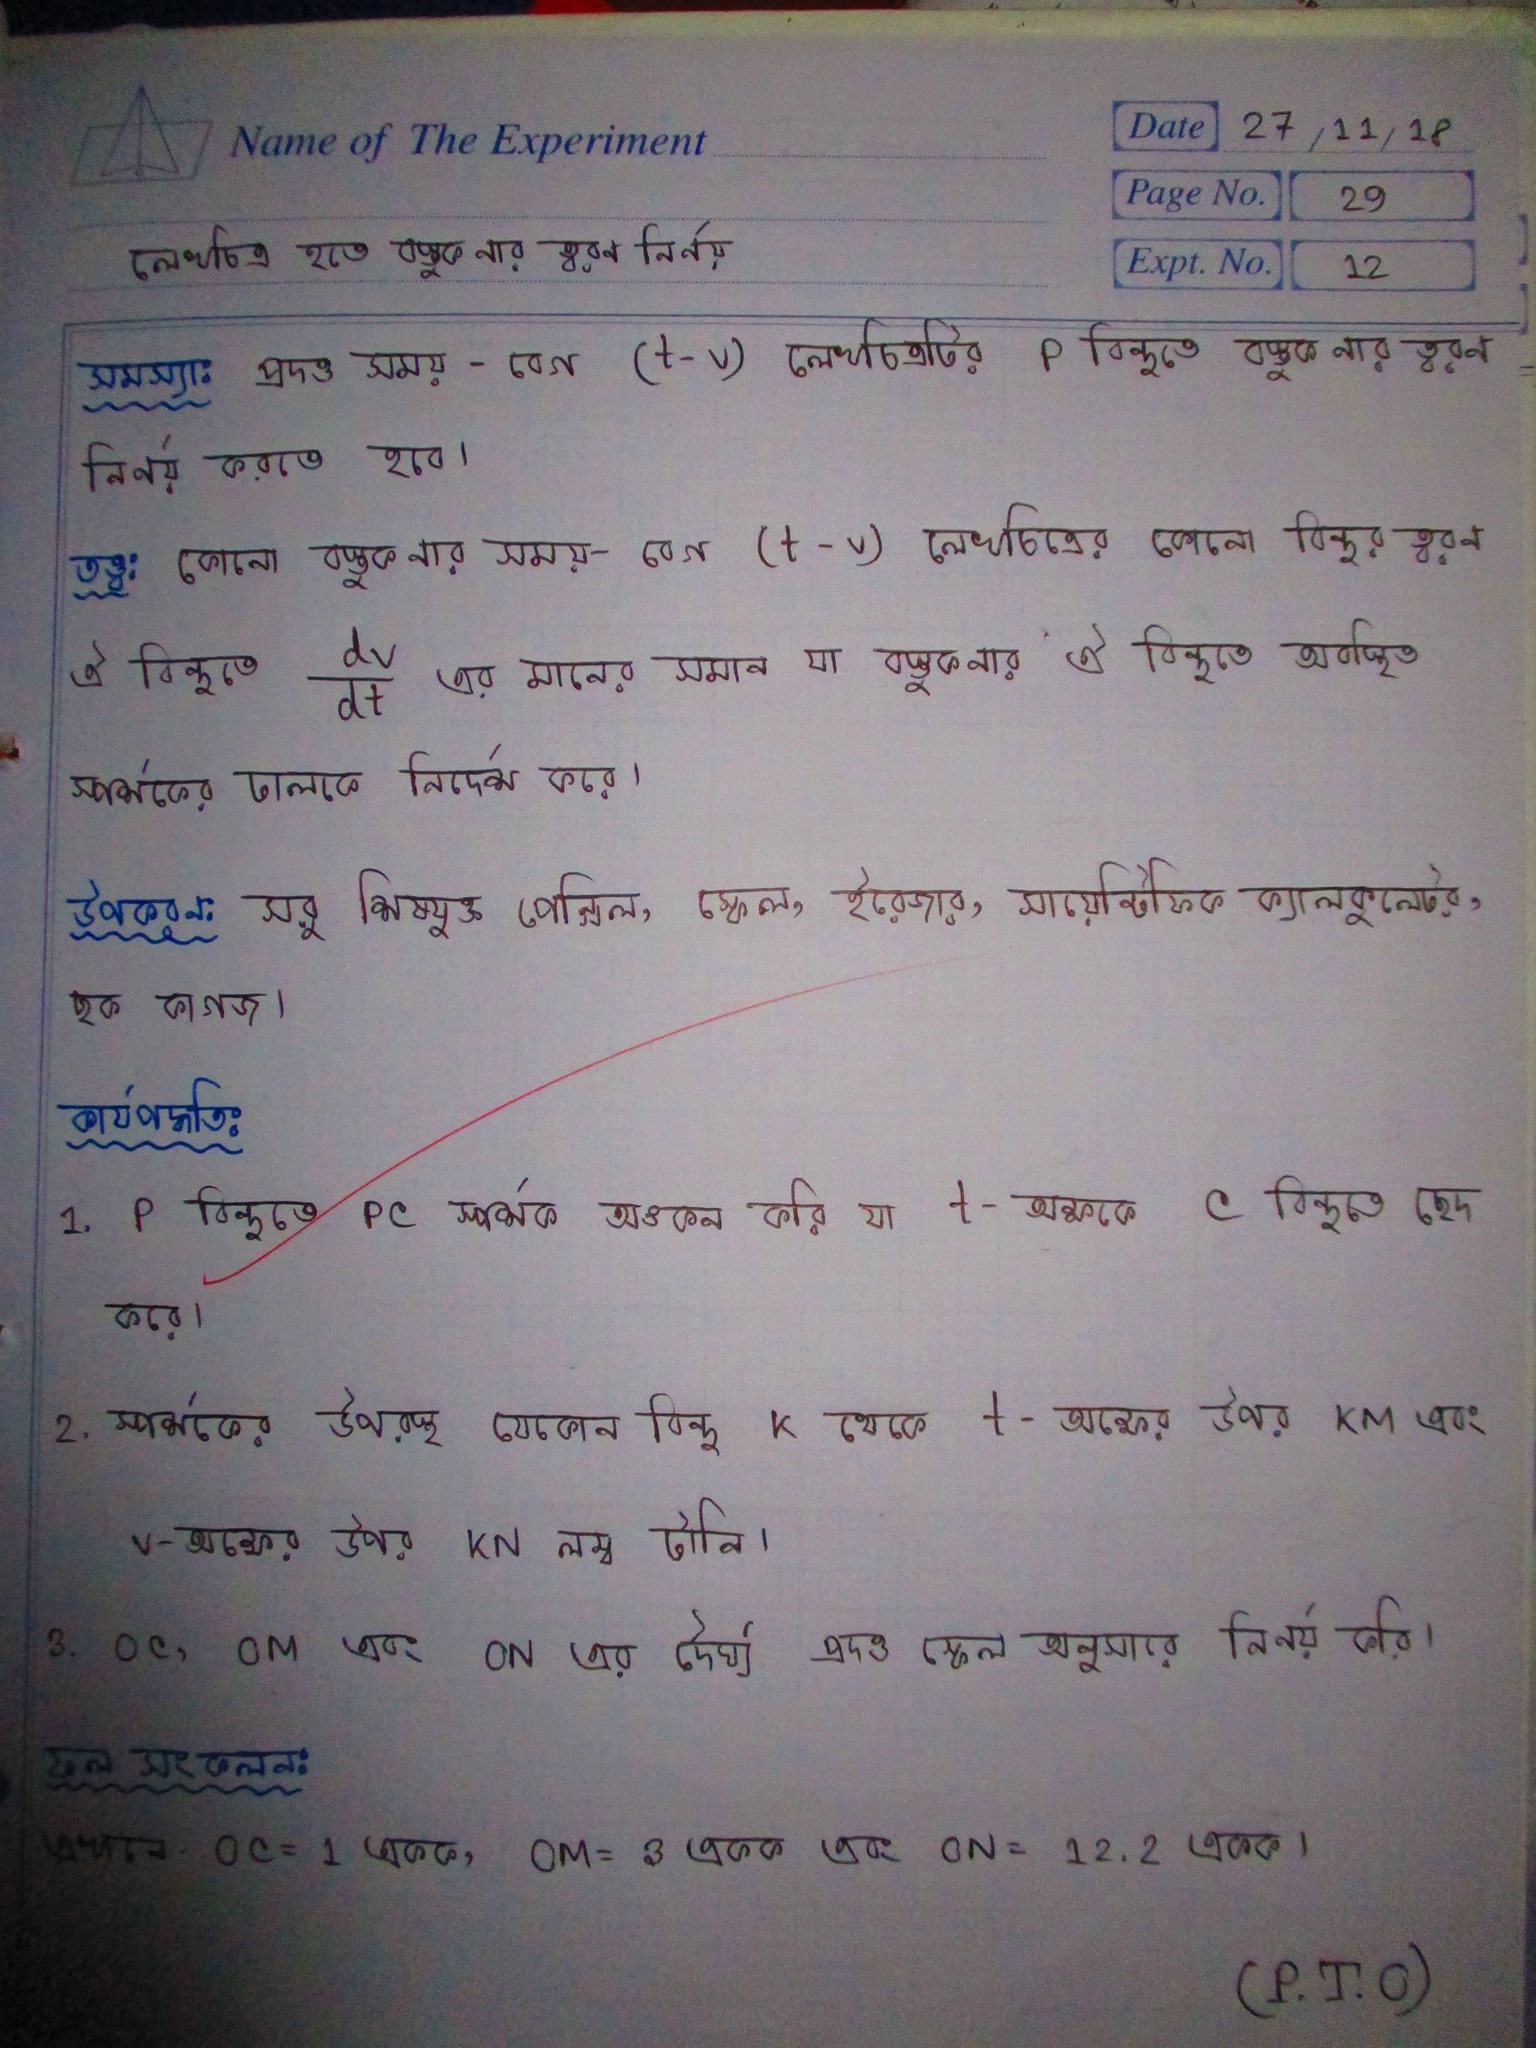 Name of The Experiment
Date 27/11/18
Page No. 29
Expt. No. 12
লেখচিত্র হতে বস্তুকনার ত্বরন নির্নয়
সমস্যাঃ প্রদত্ত সময় - বেগ (t-v) লেখচিত্রটির P বিন্দুতে বস্তুকনার ত্বরন
নির্নয় করতে হবে।
তত্ত্বঃ কোনো বস্তুকনার সময়- বেগ (t-v) লেখচিত্রের কোনো বিন্দুর ত্বরন
ঐ বিন্দুতে dv/dt এর মানের সমান যা বস্তুকনার ঐ বিন্দুতে অবস্থিত
স্পর্শকের ঢালকে নির্দেশ করে।
উপকরনঃ সরু শিষযুক্ত পেন্সিল, স্কেল, ইরেজার, সায়েন্টিফিক ক্যালকুলেটর,
ছক কাগজ।
কার্যপদ্ধতিঃ
1. P বিন্দুতে PC স্পর্শক অঙ্কন করি যা t- অক্ষকে C বিন্দুতে ছেদ
করে।
2. স্পর্শকের উপরস্থ যেকোন বিন্দু K থেকে t- অক্ষের উপর KM এবং
v-অক্ষের উপর KN লম্ব টানি।
3. OC, OM এবং ON এর দৈর্ঘ্য প্রদত্ত স্কেল অনুসারে নির্নয় করি।
ফল সংকলনঃ
এখানে OC= 1 একক, OM= 3 একক এবং ON= 12.2 একক।
(P.T.O)